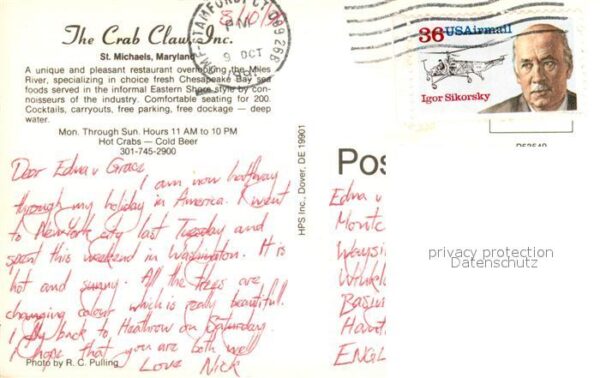 The Crab Claw, Inc.
St. Michaels, Maryland
A unique and pleasant restaurant overlooking the Miles
River, specializing in choice fresh Chesapeake Bay sea
foods served in the informal Eastern Shore style by con-
noisseurs of the industry. Comfortable seating for 200.
Cocktails, carryouts, free parking, free dockage — deep
water.
Mon. Through Sun. Hours 11 AM to 10 PM
Hot Crabs — Cold Beer
301-745-2900
Dear Edna & Grace
I am now halfway
through my holiday in America. I went
to New York city last Tuesday and
spent this weekend in Washington. It is
hot and sunny. All the trees are
changing colour which is really beautiful.
I fly back to Heathrow on Saturday.
I hope that you are both well
Love Nick
Photo by R. C. Pulling
HPS Inc., Dover, DE 19901
STAMFORD, CT 069268
PM
9 OCT
36 USAirmail
Igor Sikorsky
Pos
Edna &
Waysi
ENGL
privacy protection
Datenschutz